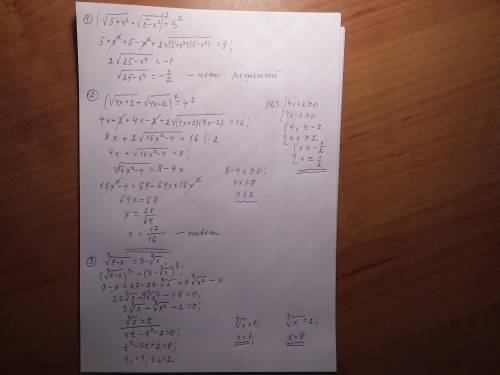 1) (√(5+x²) + √(5-x²))² = 3²
5+x²+5-x²+2√((5+x²)(5-x²)) = 9;
2√(25-x⁴) = -1
√(25-x⁴) = -1/2 - нет решений
2) (√(4x+2) + √(4x-2))² = 4²
4x+2+4x-2+2√((4x+2)(4x-2)) = 16;
8x+2√(16x²-4) = 16 |:2
4x+√(16x²-4) = 8;
√(16x²-4) = 8-4x
16x²-4 = 64-64x+16x²
64x = 68
x = 68/64
x = 17/16 - ответ
ОДЗ: {4x+2≥0
{4x-2≥0
{4x≥-2
{4x≥2
{x≥-1/2
{x≥1/2
8-4x≥0;
4x≤8
x≤2
3) ∛(9-x) = 3-∛x;
(∛(9-x))³ = (3-∛x)³;
9-x = 27-27∛x+9∛x²-x
27∛x-9∛x²-18=0;
3∛x-∛x²-2=0;
∛x=t
3t-t²-2=0;
t²-3t+2=0;
t₁=1; t₂=2.
∛x=1;
x=1;
∛x=2;
x=8